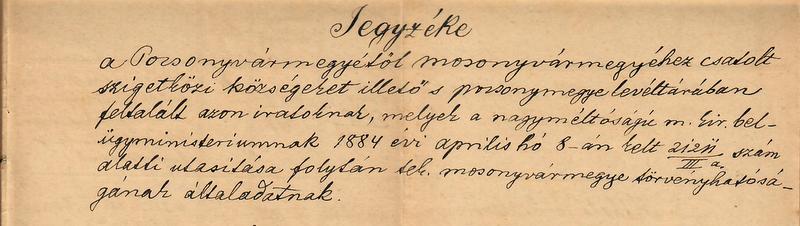 Jegyzéke
a Pozsonyvármegyétől mosonyvármegyéhez csatolt
szigetközi községeket illető s pozsonymegye levéltárában
feltalált azon iratoknak, melyek a nagyméltóságú m. kir. bel-
ügyministeriumnak 1884 évi aprilis hó 8-án kelt szám
III a.
alatti utasítása folytán tek. mosonyvármegye törvényhatósá-
gának általadatnak.